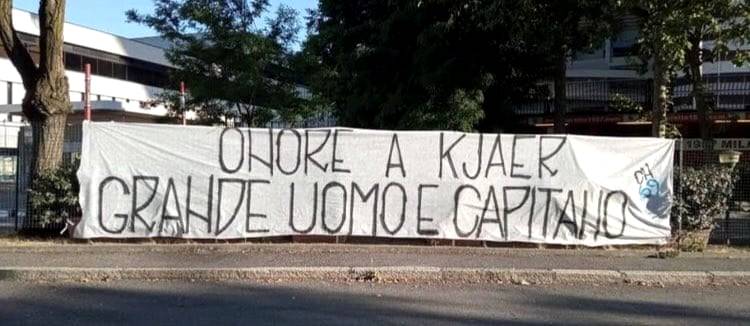 ONORE A KJAER
GRANDE UOMO E CAPITANO
CN
69